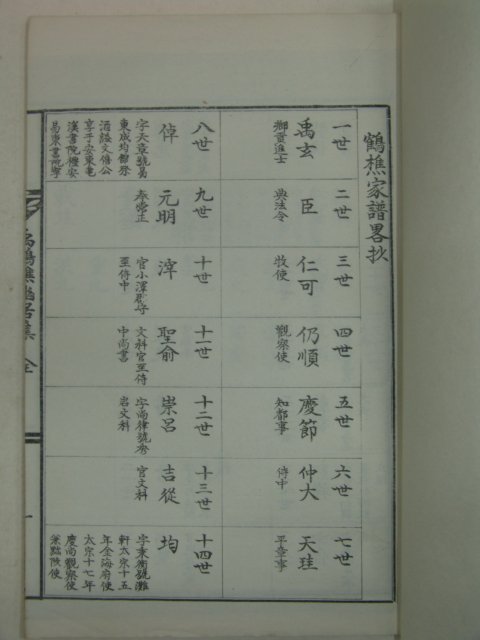 鶴樵家譜畧抄
一世
禹玄
鄕貢進士
二世
臣
典法令
三世
仁可
牧使
四世
仍順
觀察使
五世
慶節
知都事
六世
仲大
侍中
七世
天珪
平章事
八世
倬
字天章號易
東成均祭
酒謚文僖公
享于安東龜
溪書院禮安
易東書院等
九世
元明
奉常正
十世
官小
至侍中
十一世
聖俞
文科官至侍
中尚書
十二世
崇呂
字尚律號
岩文科
十三世
吉從
官文科
十四世
均
字秉衡號灘
軒太宗十五
年金海府使
太宗十七年
慶尚觀察使
兼黜陟使
鶴樵幽居集 全
一